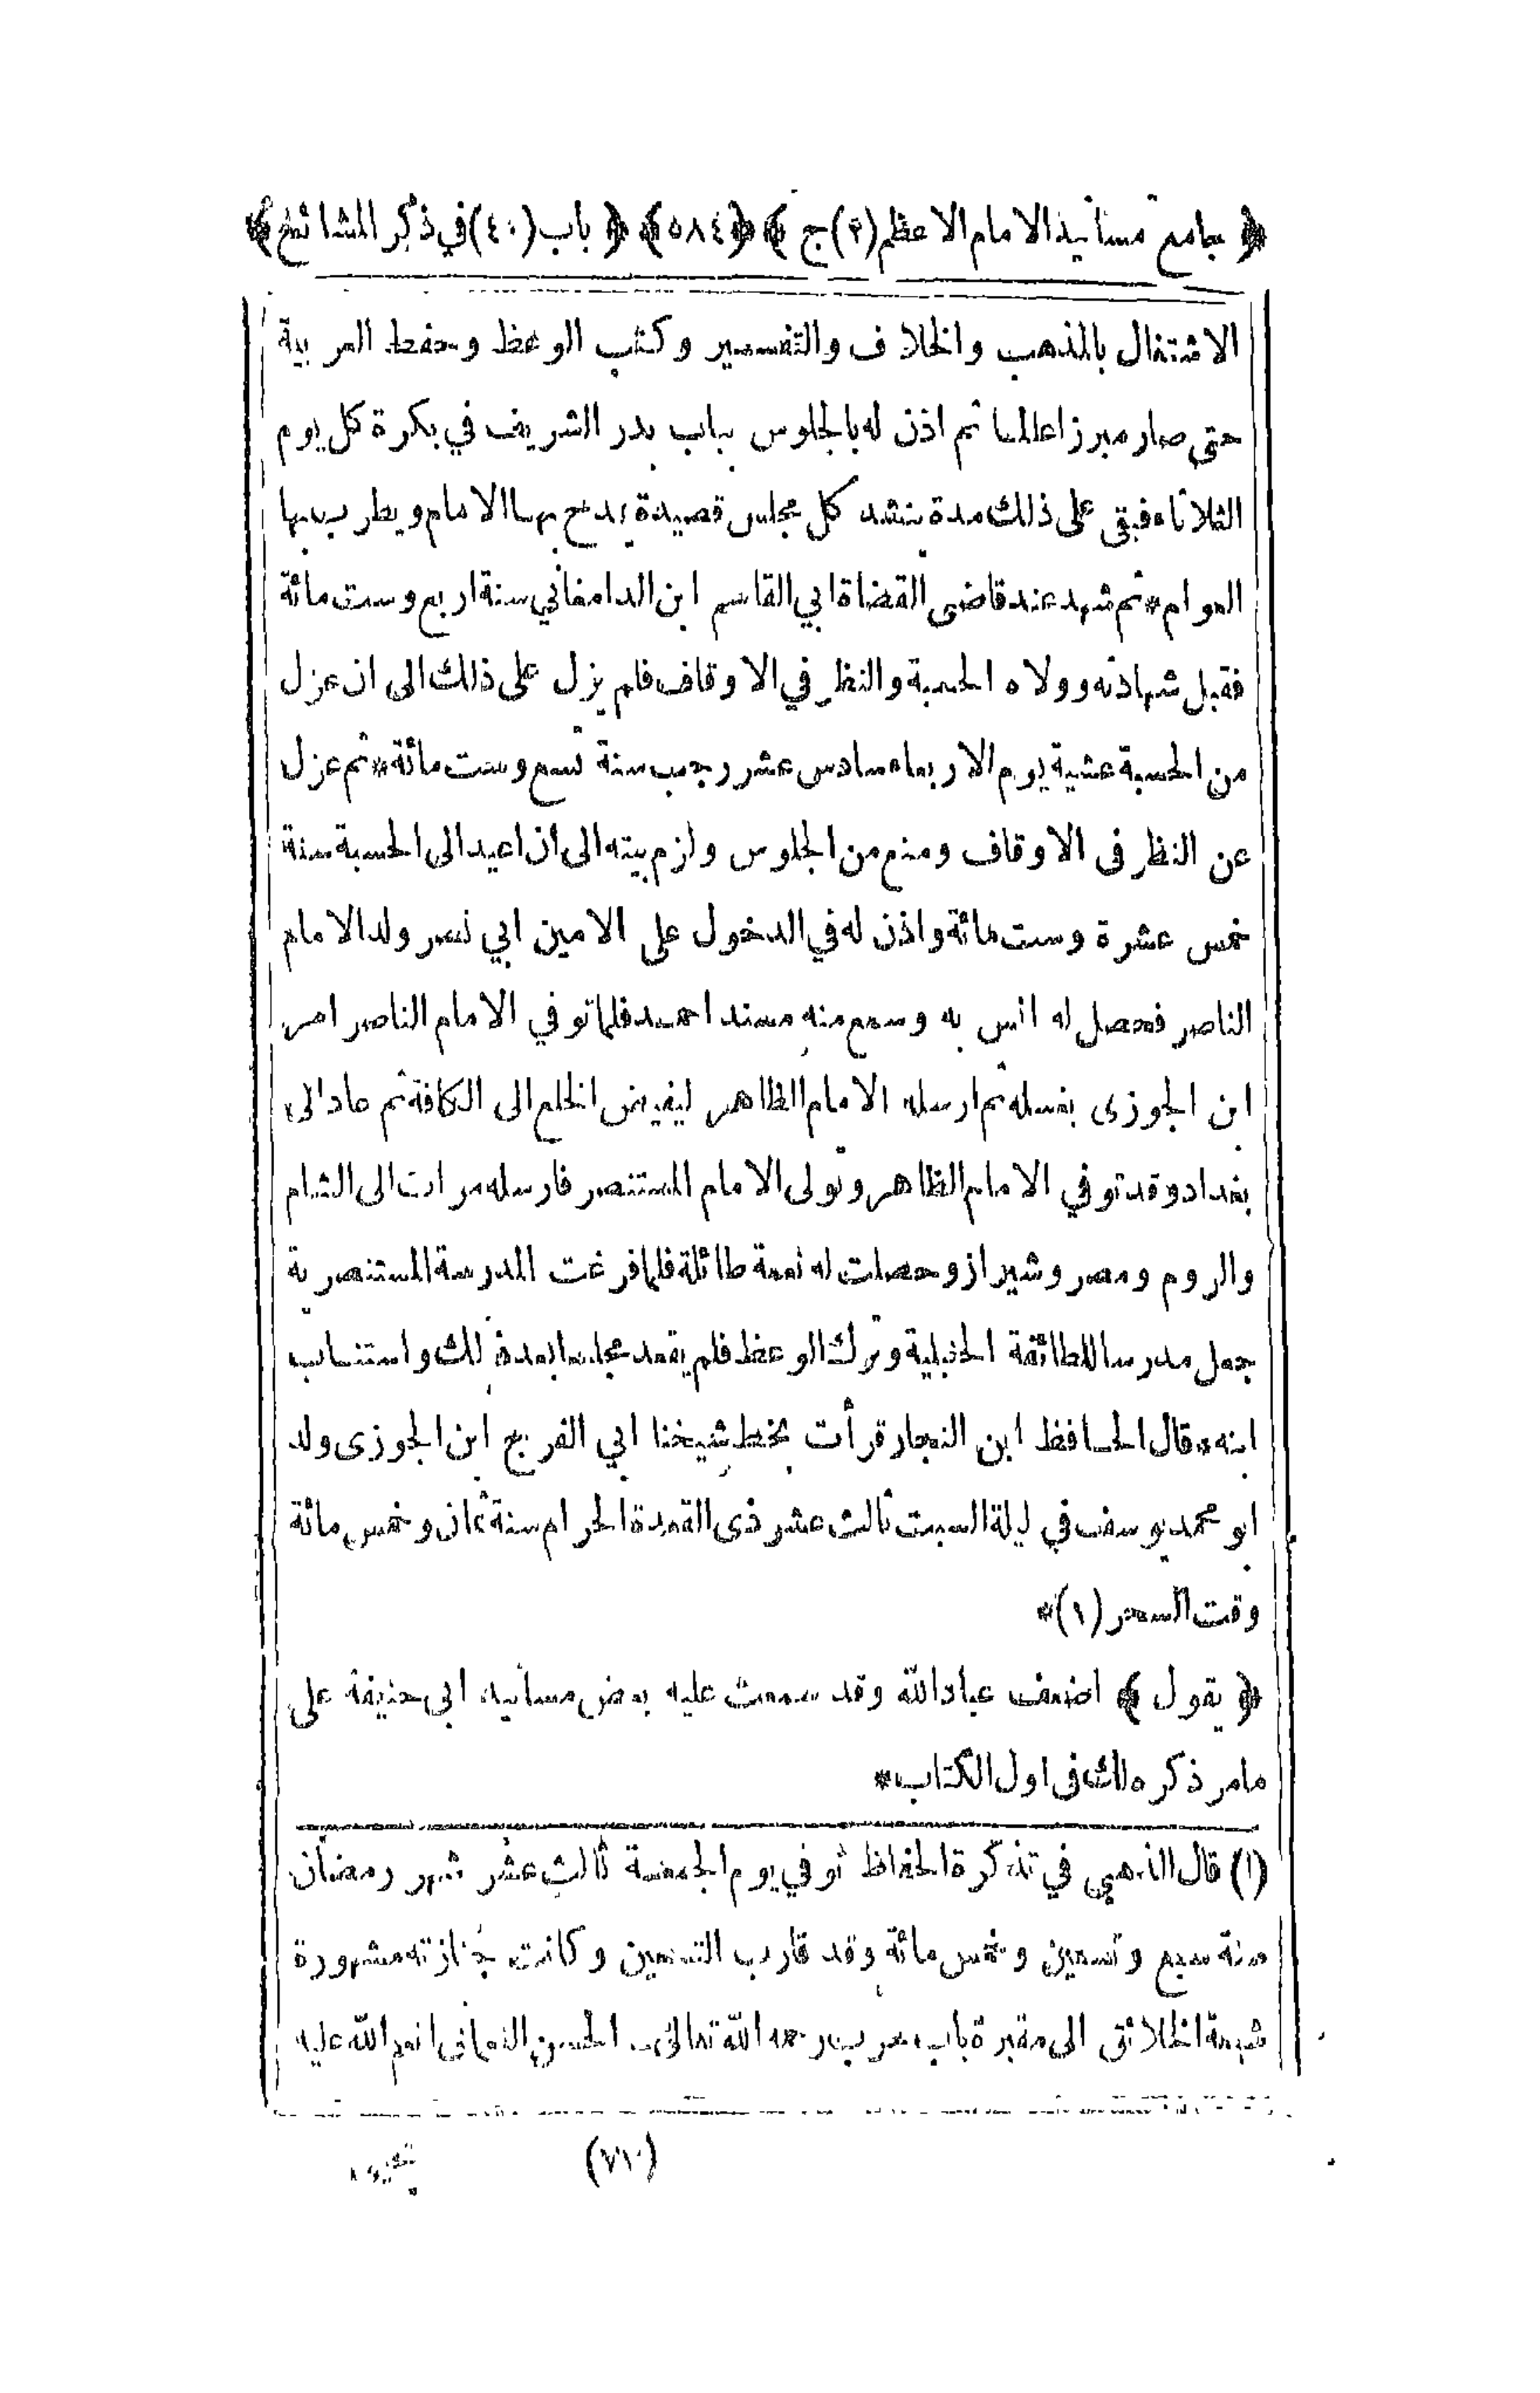 ﴿ جامع مسانيد الامام الاعظم (٢) ج ﴾ ﴿ ٥٨٤ ﴾ ﴿ باب (٤٠) في ذكر المشائخ ﴾
الاشتغال بالمذهب والخلاف والتفسير وكتب الوعظ وحفظ العربية
حتى صار مبرزا عالما ثم اذن له بالجلوس بباب بدر الشريف في بكرة كل يوم
الثلاثاء فبقي على ذلك مدة ينشد كل مجلس قصيدة يمدح بها الامام ويطرب بها
العوام * ثم شهد عند قاضي القضاة ابي القاسم ابن الدامغاني سنة اربع وست مائة
فقبل شهادته وولاه الحسبة والنظر في الاوقاف فلم يزل على ذلك الى ان عزل
من الحسبة عشية يوم الاربعاء سادس عشر رجب سنة تسع وست مائة * ثم عزل
عن النظر فى الاوقاف ومنع من الجلوس ولزم بيته الى ان اعيد الى الحسبة سنة
خمس عشرة وست مائة واذن له في الدخول على الامين ابي نصر ولد الامام
الناصر فحصل له انس به وسمع منه مسند احمد فلما توفي الامام الناصر امر
ابن الجوزى بغسله ثم ارسله الامام الظاهر ليفيض الخلع الى الكافة ثم عاد الى
بغداد وقد توفي الامام الظاهر وتولى الامام المستنصر فارسله مرات الى الشام
والروم ومصر وشيراز وحصلت له نعمة طائلة فلما فرغت المدرسة المستنصرية
جعل مدرسا للطائفة الحنبلية وترك الوعظ فلم يعقد مجلسا بعد ذلك واستناب
ابنه * قال الحافظ ابن النجار قرأت بخط شيخنا ابي الفرج ابن الجوزى ولد
ابو محمد يوسف في ليلة السبت ثالث عشر ذى القعدة الحرام سنة ثمان وخمس مائة
وقت السحر (١) *
﴿ يقول ﴾ اضعف عباد الله وقد سمعت عليه بعض مسانيد ابي حنيفة على
مامر ذكره لك فى اول الكتاب *
(١) قال الذهبي في تذكرة الحفاظ توفي يوم الجمعة ثالث عشر شهر رمضان
سنة سبع وتسعين وخمس مائة وقد قارب التسعين وكانت جنازته مشهورة
شيعه الخلائق الى مقبرة باب حرب رحمه الله تعالى. الحسن النعمانى انعم الله عليه